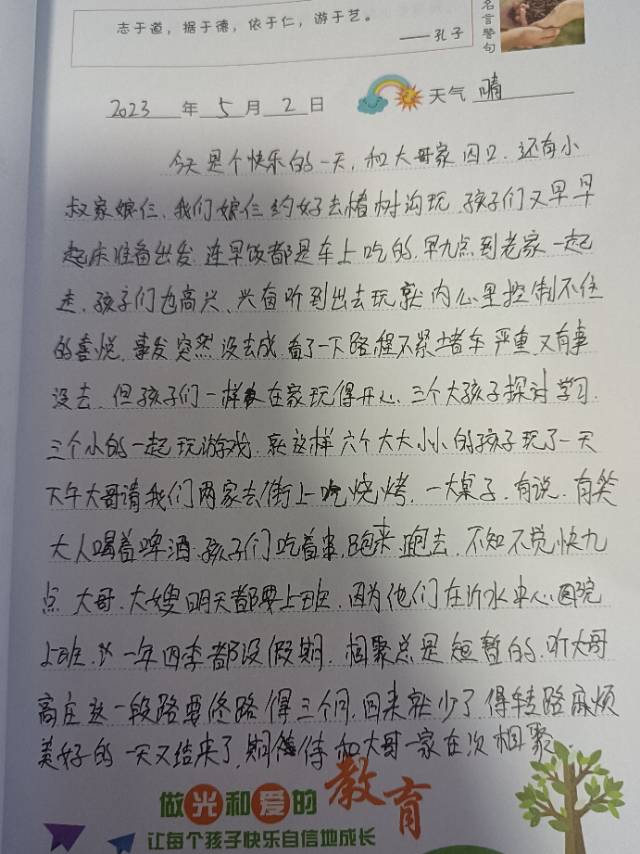 志于道，据于德，依于仁，游于艺。
——孔子
名言警句
2023年5月2日 天气 晴
今天是个快乐的一天，和大哥家四口．还有小
叔家娘仨，我们娘仨约好去椿树沟玩．孩子们又早早
起床准备出发．连早饭都是车上吃的．早九点到老家一起
走．孩子们也高兴、兴奋听到出去玩就内心里控制不住
的喜悦．事发突然没去成．看了一下路程不紧堵车严重．又有事
没去．但孩子们一样在家玩得开心．三个大孩子探讨学习．
三个小的一起玩游戏．就这样六个大大小小的孩子玩了一天
下午大哥请我们两家去街上吃烧烤．一大桌子．有说．有笑
大人喝着啤酒．孩子们吃着串，跑来跑去．不知不觉快九
点．大哥．大嫂明天都要上班．因为他们在沂水中心医院
上班．一年四季都没假期．相聚总是短暂的．听大哥
高庄这一段路要修路得三个月．回来就少了得转路麻烦
美好的一天又结束了．期待和大哥一家在次相聚
做光和爱的教育
让每个孩子快乐自信地成长